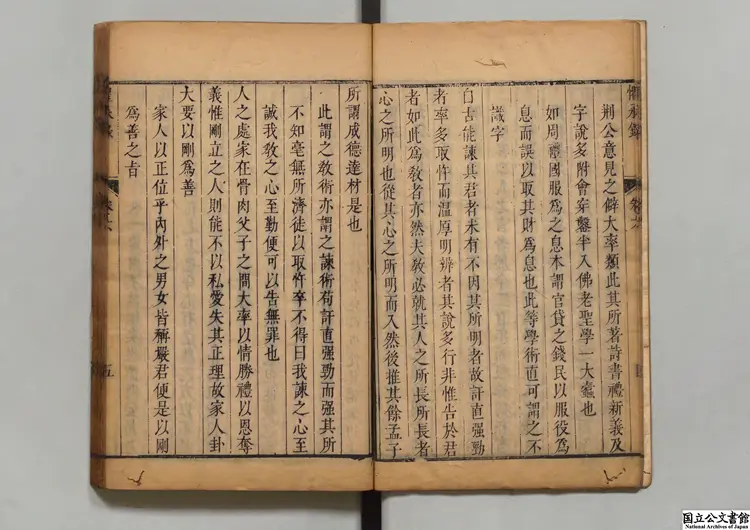 荊公意見之僻大率類此其所著詩書禮新義及
字說多附會穿鑿半入佛老聖學一大蠹也
如周禮國服爲之息本謂官貸之錢民以服役爲
息而誤以取其財爲息也此等學術直可謂之不
識字
自古能諫其君者未有不因其所明者故訐直强勁
者率多取忤而溫厚明辨者其說多行非惟告於君
者如此爲敎者亦然夫敎必就其人之所長所長者
心之所明也從其心之所明而入然後推其餘孟子
所謂成德達材是也
此謂之敎術亦謂之諫術苟訐直强勁而强其所
不知毫無所濟徒以取忤卒不得曰我諫之心至
誠我敎之心至勤便可以告無罪也
人之處家在骨肉父子之間大率以情勝禮以恩奪
義惟剛立之人則能不以私愛失其正理故家人卦
大要以剛爲善
家人以正位乎內外之男女皆稱嚴君便是以剛
爲善之旨
卷六
五
国立公文書館
National Archives of Japan